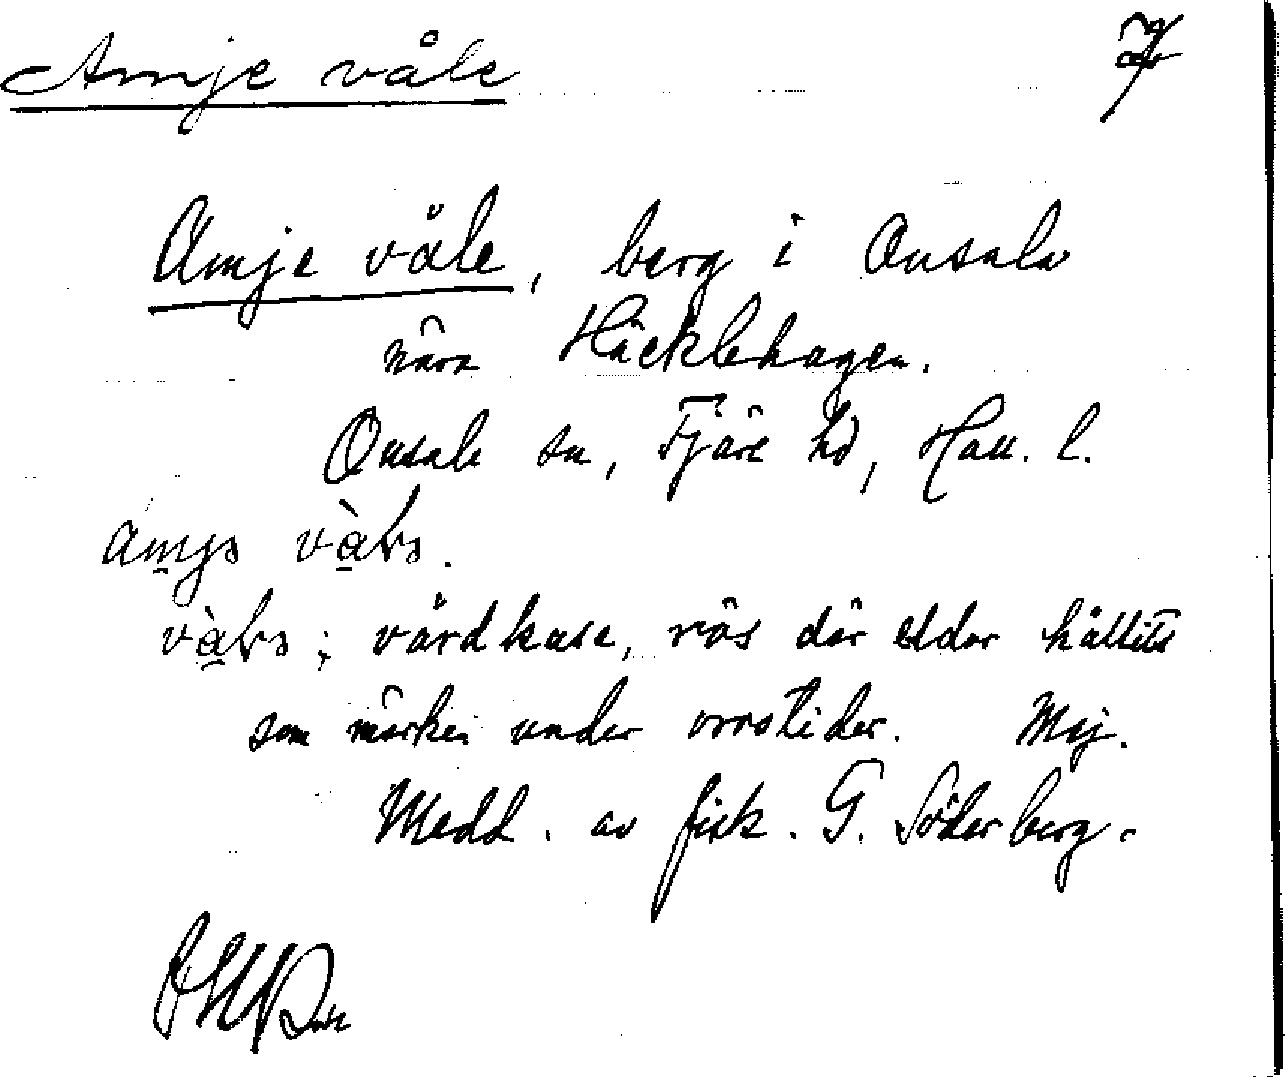 Amje våle
Amje våle, berg i Onsala
nära Häcklehagen.
Onsala sn, Fjäre hd, Hall. l.
vårdkase, rös där eldar hållits
som märken under orostider. Maj.
Medd. av fisk. G. Söderberg.